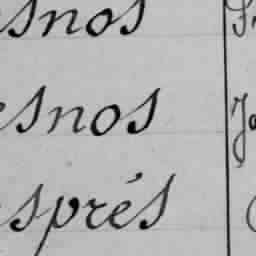 esnos
esnos
esprés